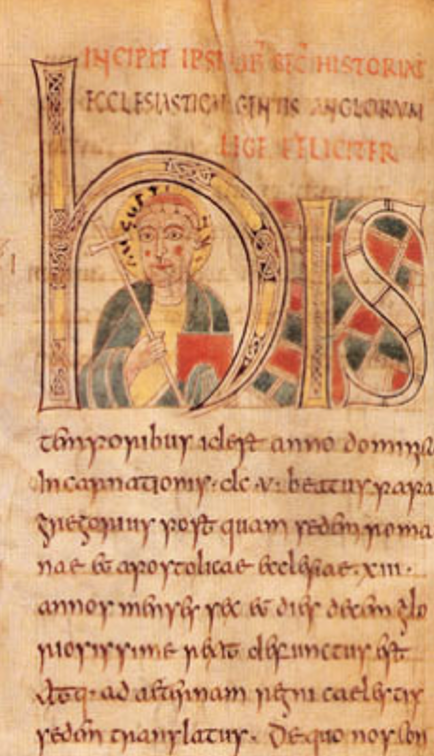 INCIPIT IPSIUS SEC HISTORIAE
ECCLESIASTICAE GENTIS ANGLORUM
LEGE FELICITER
AUGUSTI
HIS
temporibus id est anno dominicae
incarnationis · dc · v · beatus papa
gregorius post quam sedem roma
nae et apostolicae ecclesiae · xiii ·
annos menses sex et dies decem glo
riosissime rexit defunctus est
atq· ad aeternam regni caelestis
sedem translatus · De quo nos con